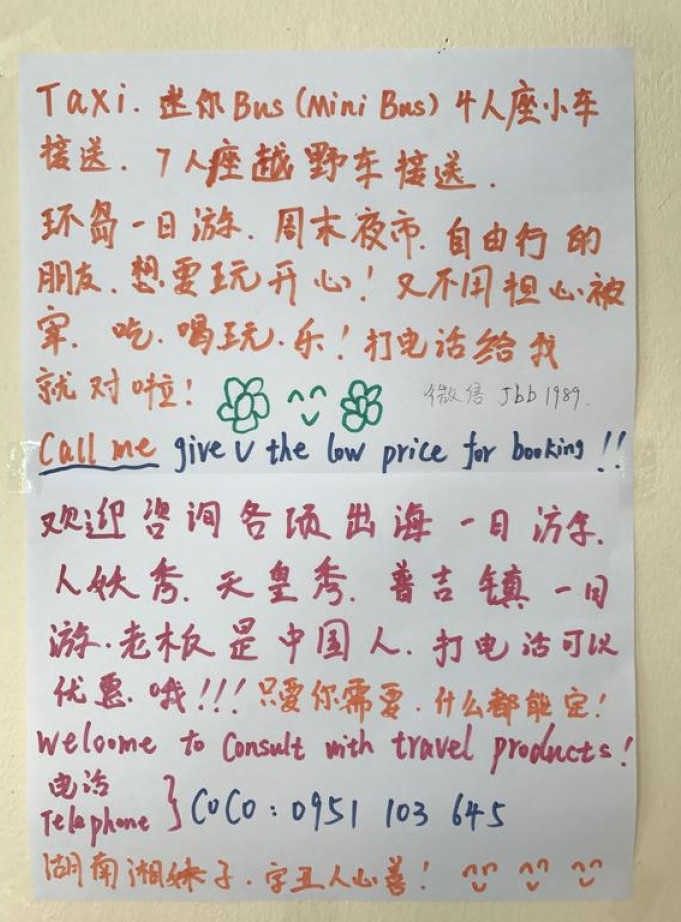 Taxi. 迷你Bus (Mini Bus) 4人座小车
接送. 7人座越野车接送.
环岛一日游. 周末夜市. 自由行的
朋友. 想要玩开心! 又不用担心被
宰. 吃.喝.玩.乐! 打电话给我
就对啦!
微信 Jbb1989.
Call me give U the low price for booking!!
欢迎咨询各项出海一日游.
人妖秀. 天皇秀. 普吉镇一日
游. 老板是中国人. 打电话可以
优惠哦!!! 只要你需要. 什么都能定!
Weloome to Consult with travel products!
电话
Telephone } CoCo: 0951 103 645
湖南湘妹子. 字丑人心善!